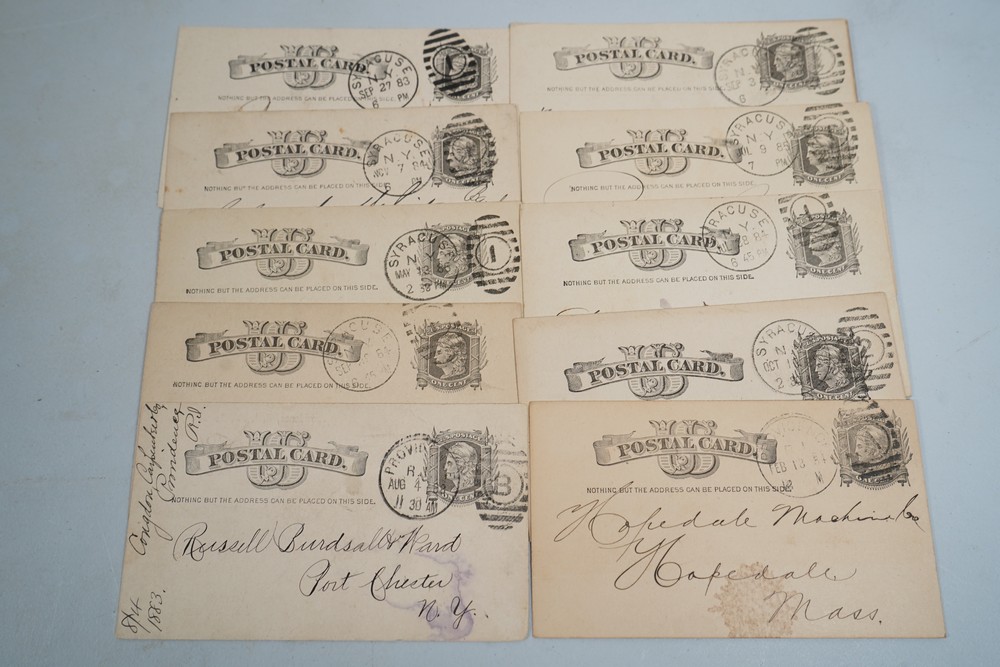 US
POSTAL CARD.
NOTHING BUT THE ADDRESS CAN BE PLACED ON THIS SIDE.
SYRACUSE
N.Y.
SEP 27 83
6 PM
1
US
POSTAL CARD.
NOTHING BUT THE ADDRESS CAN BE PLACED ON THIS SIDE.
SYRACUSE
N.Y.
SEP 3
6
US
POSTAL CARD.
NOTHING BUT THE ADDRESS CAN BE PLACED ON THIS SIDE.
SYRACUSE
N.Y.
NOV 7 84
6 PM
ONE CENT
US
POSTAL CARD.
NOTHING BUT THE ADDRESS CAN BE PLACED ON THIS SIDE.
SYRACUSE
N Y
9
7 PM
ONE CENT
US
POSTAL CARD.
NOTHING BUT THE ADDRESS CAN BE PLACED ON THIS SIDE.
SYRACUSE
N.Y.
MAY 13
2
1
US
POSTAL CARD.
NOTHING BUT THE ADDRESS CAN BE PLACED ON THIS SIDE.
SYRACUSE
8 45 PM
1
ONE CENT
US
POSTAL CARD.
NOTHING BUT THE ADDRESS CAN BE PLACED ON THIS SIDE.
ONE CENT
US
POSTAL CARD.
SYRACUSE
N
OCT
2
ONE CENT
US
POSTAL CARD.
NOTHING BUT THE ADDRESS CAN BE PLACED ON THIS SIDE.
R.I.
AUG 4
11 30 AM
B
Congdon Carpenter & Co
Providence
R.I.
8/4
1883.
Russell Burdsall & Ward
Port Chester
N.Y.
US
POSTAL CARD.
NOTHING BUT THE ADDRESS CAN BE PLACED ON THIS SIDE.
Hopedale Machine Co
Hopedale
Mass.